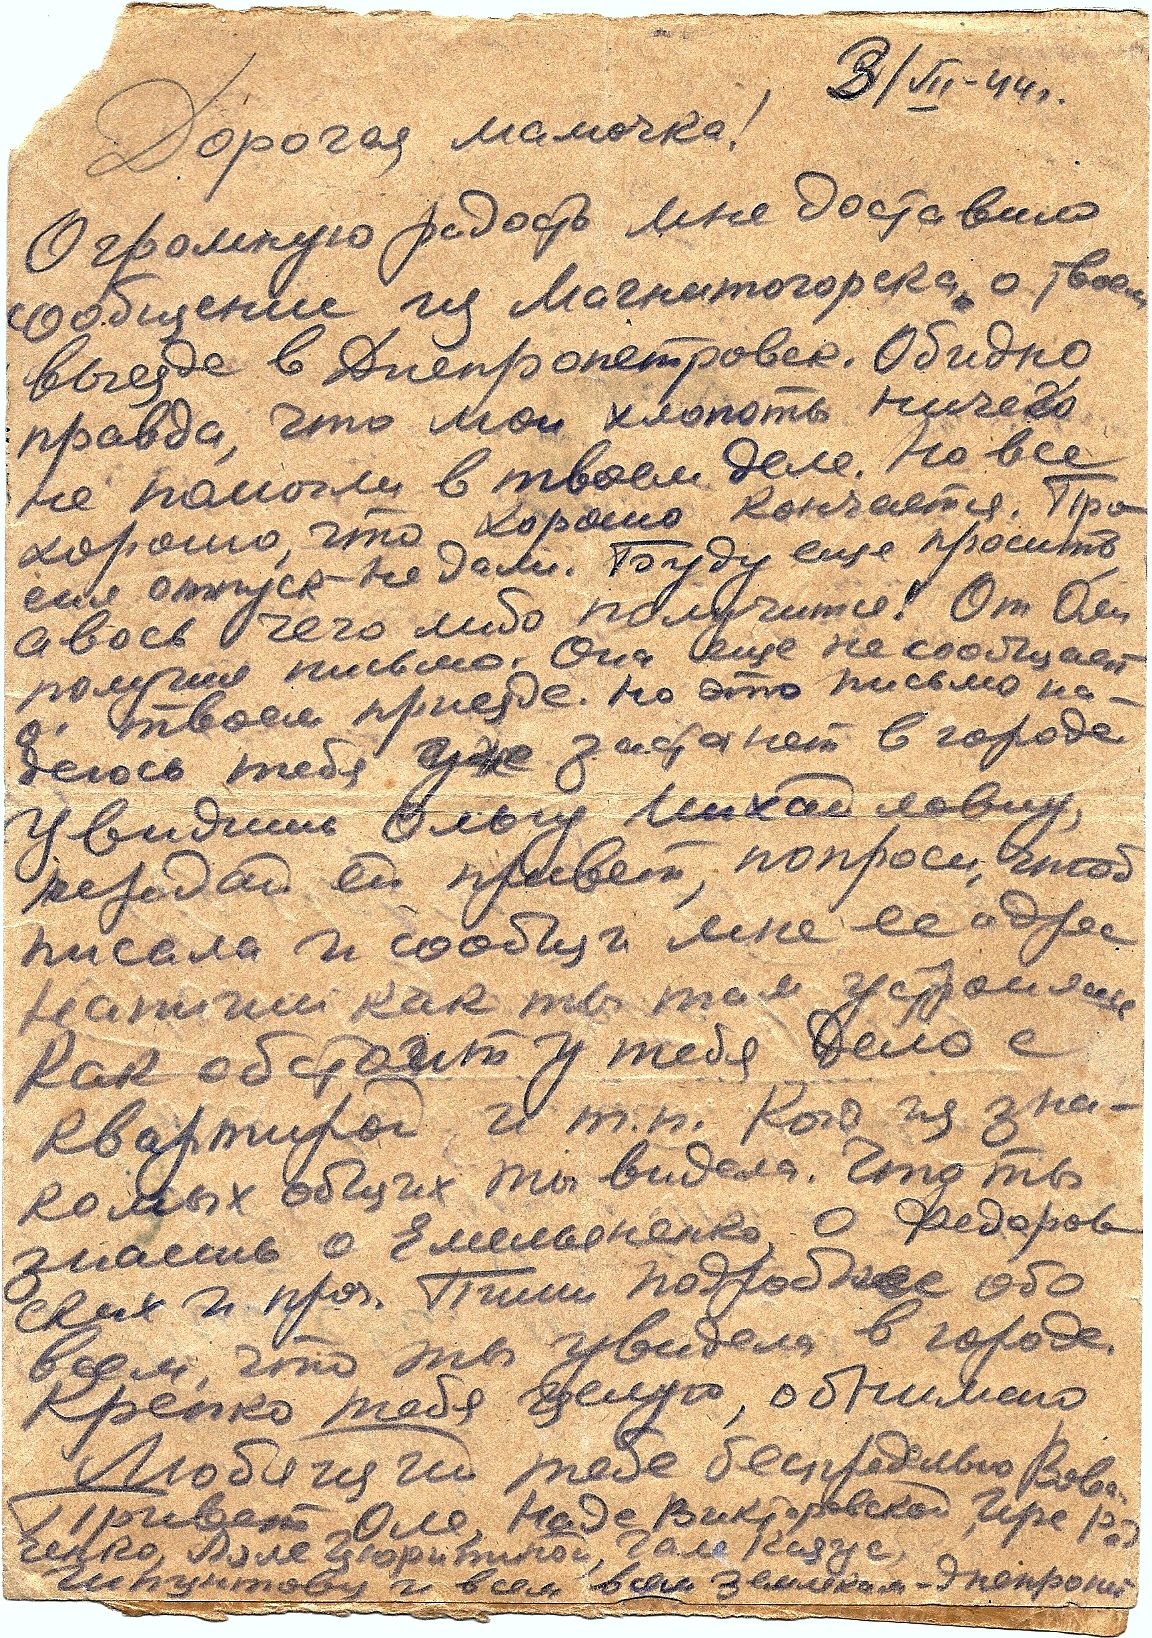 3/VII-44г.
Дорогая мамочка!
Огромную радость мне доставило
сообщение из Магнитогорска о твоем
выезде в Днепропетровск. Обидно
правда, что мои хлопоты ничего
не помогли в твоем деле. Но все
хорошо, что хорошо кончается. Про-
сил отпуск - не дали. Буду еще просить
авось чего либо получится! От Оли
получил письмо. Она еще не сообщает
о твоем приезде. Но это письмо на-
деюсь тебя уже застанет в городе.
Увидишь Ольгу Михайловну,
передай ей привет, попроси, чтоб
писала и сообщи мне ее адрес
Напиши как ты там устроилась
Как обстоит у тебя дело с
квартирой и т.п. Кого из зна-
комых общих ты видела. Что ты
знаешь о Емельяненко, о Федоров
ских и проч. Пиши подробнее обо
всем, что ты увидела в городе.
Крепко тебя целую, обнимаю
Любящий тебе беспредельно Вова.
Привет Оле, Наде Викторовской, Ире Рад
ченко, Ляле, Гале
и всем всем землякам - Днепропет